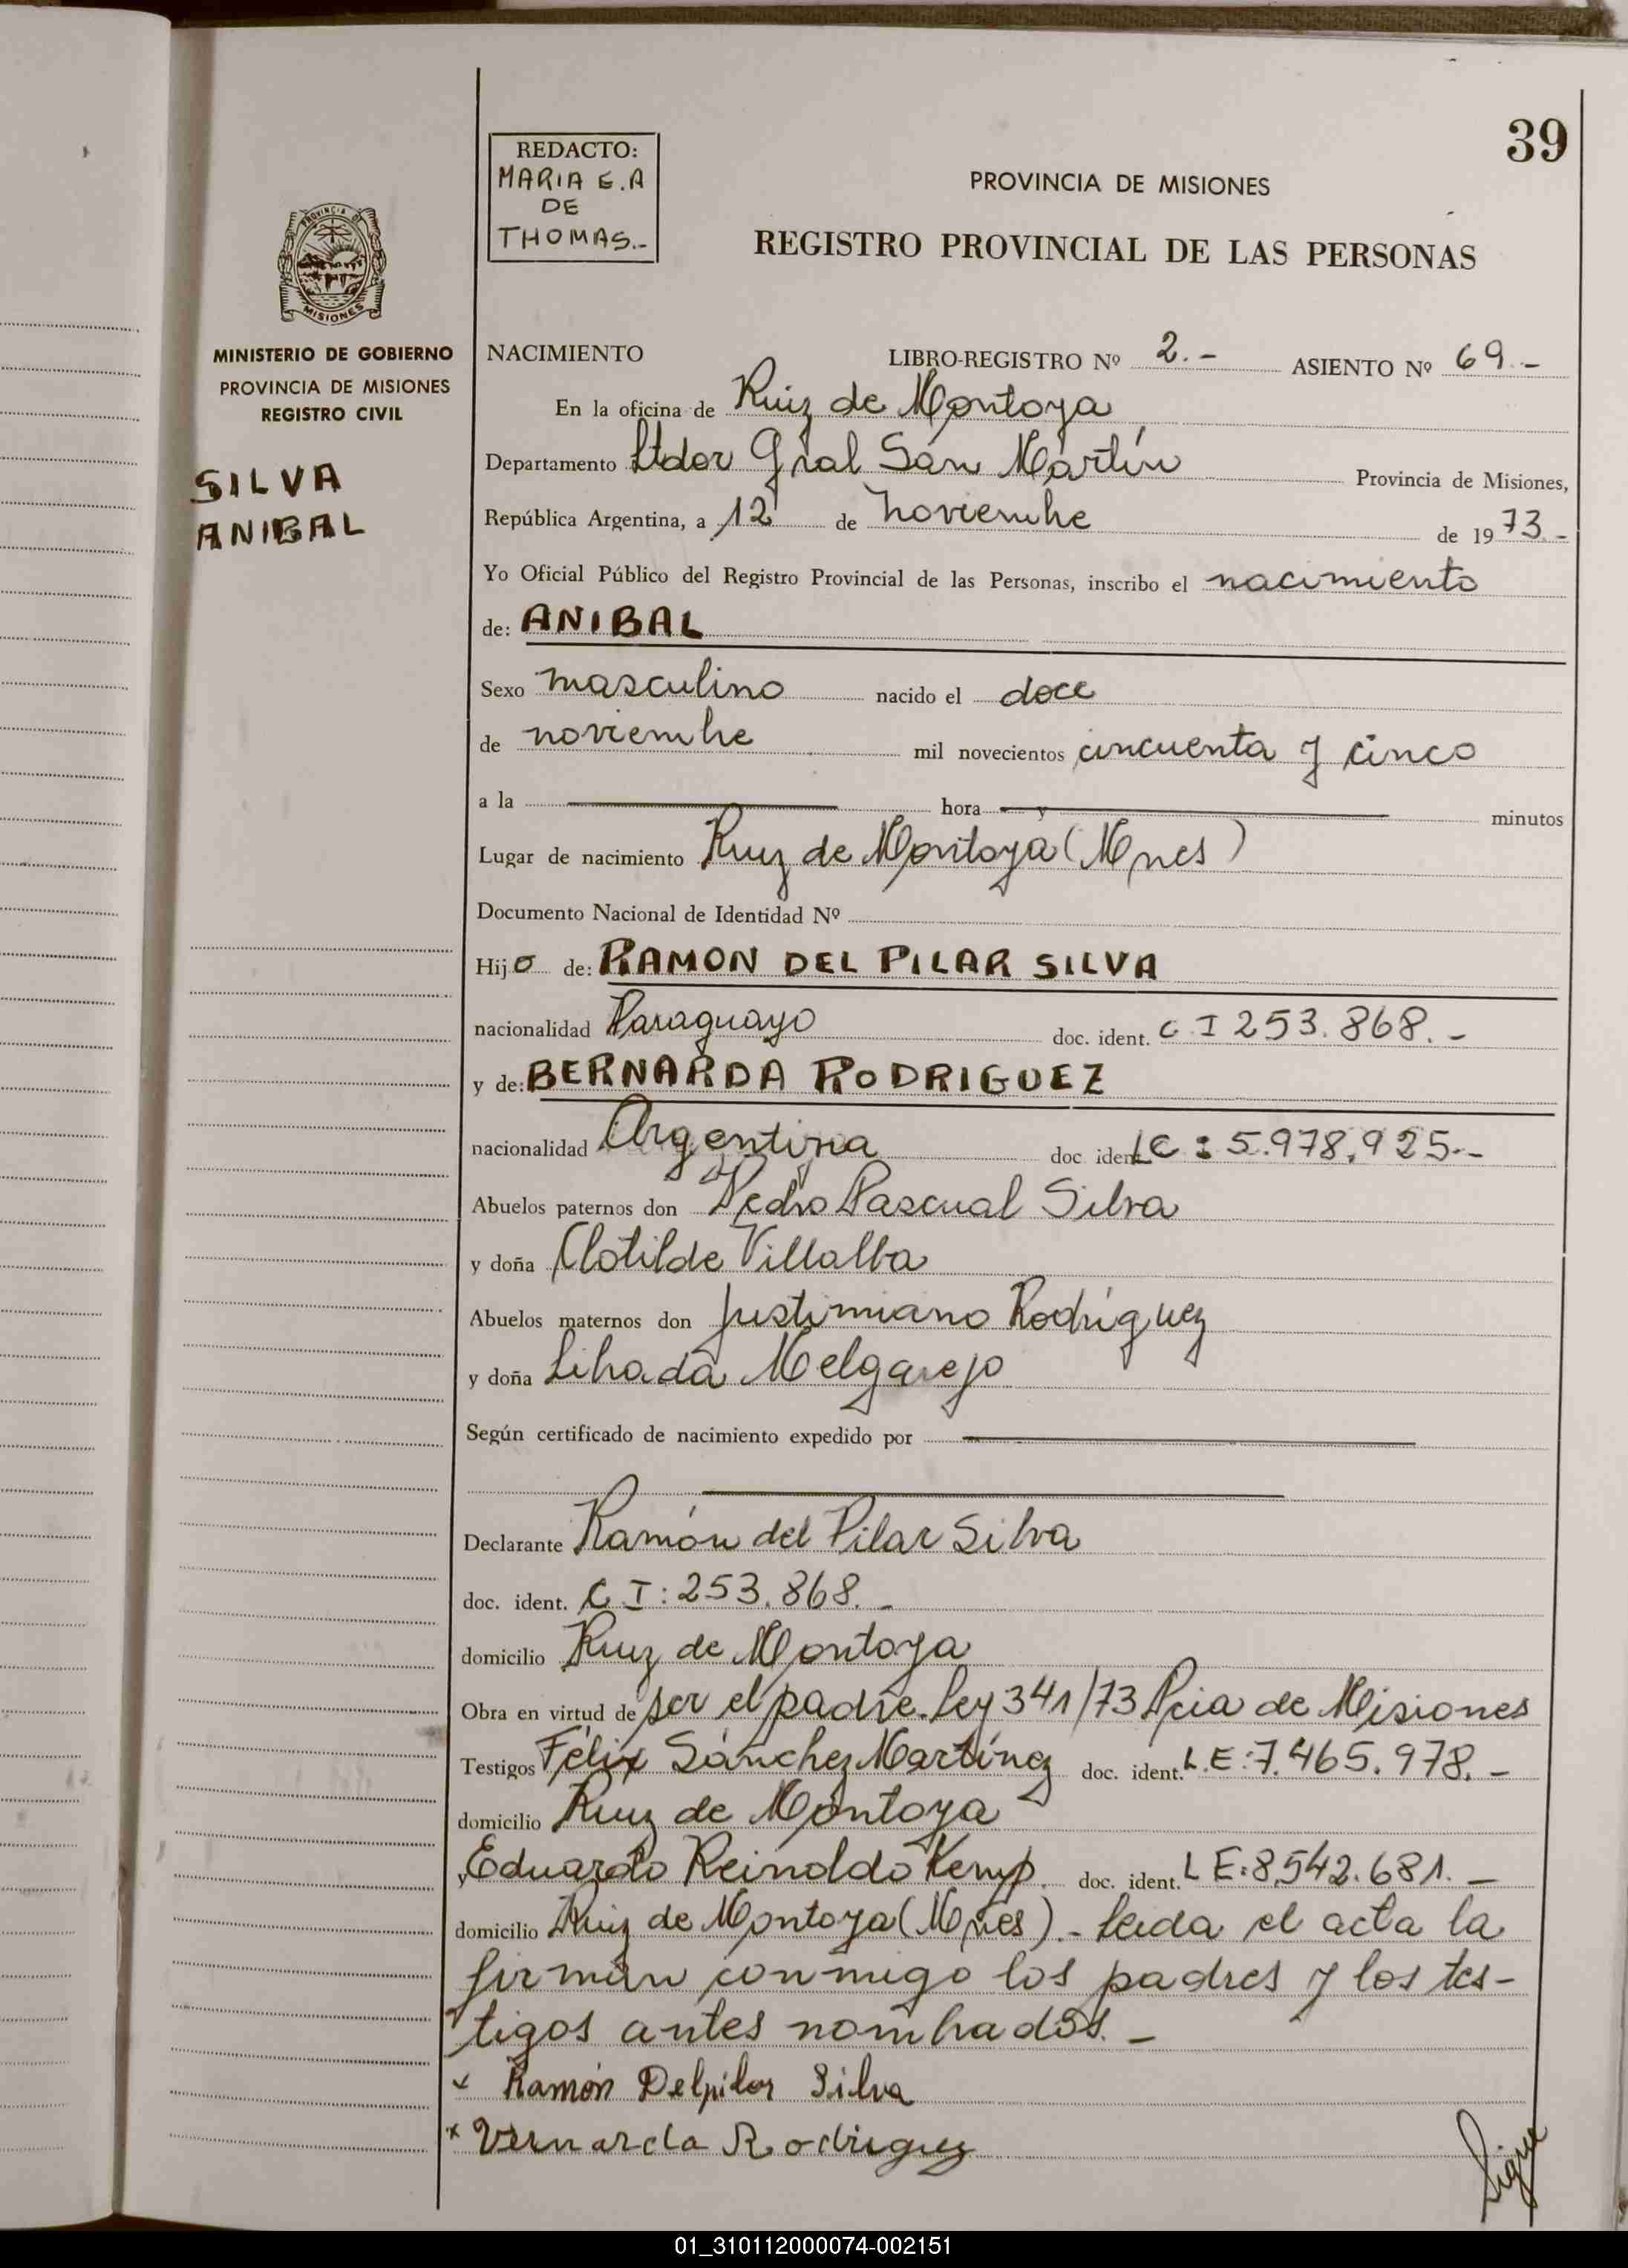 39
REDACTO:
MARIA E.A
DE
THOMAS.-
PROVINCIA DE MISIONES
REGISTRO PROVINCIAL DE LAS PERSONAS
PROVINCIA DE
MISIONES
MINISTERIO DE GOBIERNO
PROVINCIA DE MISIONES
REGISTRO CIVIL
SILVA
ANIBAL
NACIMIENTO LIBRO-REGISTRO Nº 2.- ASIENTO Nº 69.-
En la oficina de Ruiz de Montoya
Departamento Ltdor Gral San Martín Provincia de Misiones,
República Argentina, a 12 de noviembre de 1973.-
Yo Oficial Público del Registro Provincial de las Personas, inscribo el nacimiento
de: ANIBAL
Sexo masculino nacido el doce
de noviembre mil novecientos cincuenta y cinco
a la hora y minutos
Lugar de nacimiento Ruiz de Montoya (Mnes)
Documento Nacional de Identidad Nº
Hijo de: RAMON DEL PILAR SILVA
nacionalidad Paraguayo doc. ident. C I 253.868.-
y de: BERNARDA RODRIGUEZ
nacionalidad Argentina doc ident LC: 5.978.925.-
Abuelos paternos don Pedro Pascual Silva
y doña Clotilde Villalba
Abuelos maternos don Justiniano Rodríguez
y doña Librada Melgarejo
Según certificado de nacimiento expedido por
Declarante Ramón del Pilar Silva
doc. ident. C I: 253.868.-
domicilio Ruiz de Montoya
Obra en virtud de ser el padre. Ley 341/73 Pcia de Misiones
Testigos Félix Sánchez Martínez doc. ident. L.E:7.465.978.-
domicilio Ruiz de Montoya
y Eduardo Reinoldo Kemp. doc. ident. L E:8.542.681.-
domicilio Ruiz de Montoya (Mnes).- Leida el acta la
firman conmigo los padres y los tes-
tigos antes nombrados.-
x Ramón Delpilar Silva
x Vernarda Rodriguez
Sigue
01_310112000074-002151